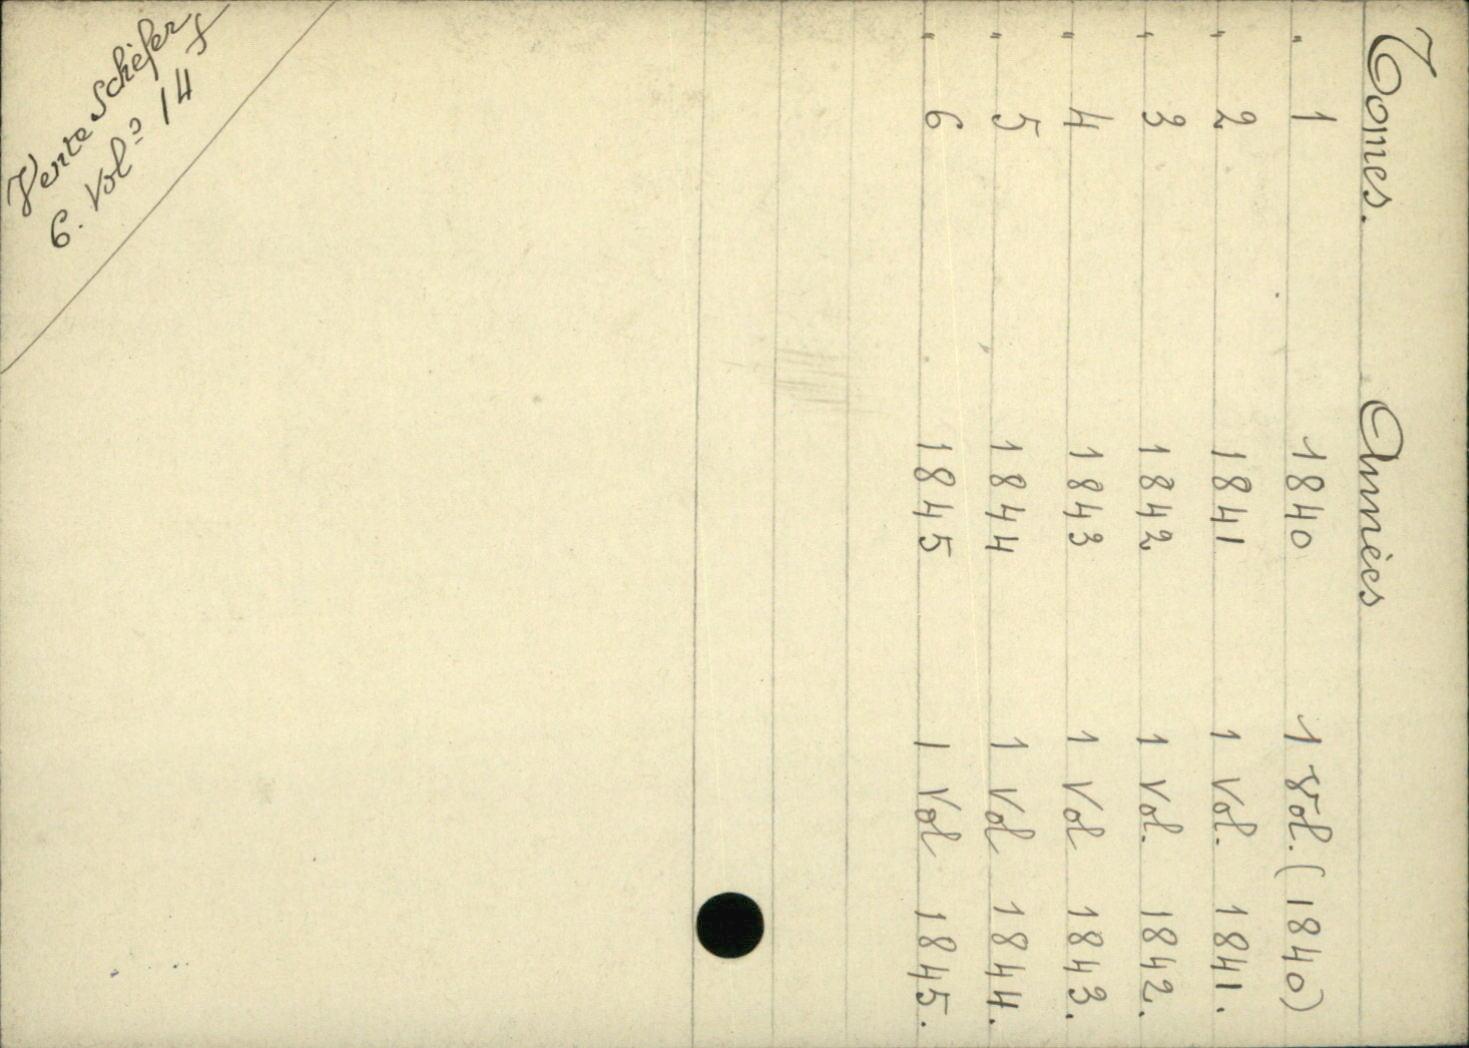 Tomes. Années
" 1 1840 1 Vol. (1840)
" 2 1841 1 Vol. 1841.
" 3 1842 1 Vol. 1842.
" 4 1843 1 Vol 1843.
" 5 1844 1 Vol 1844.
" 6 1845 1 Vol 1845.
6. Vol
Vente Schefer